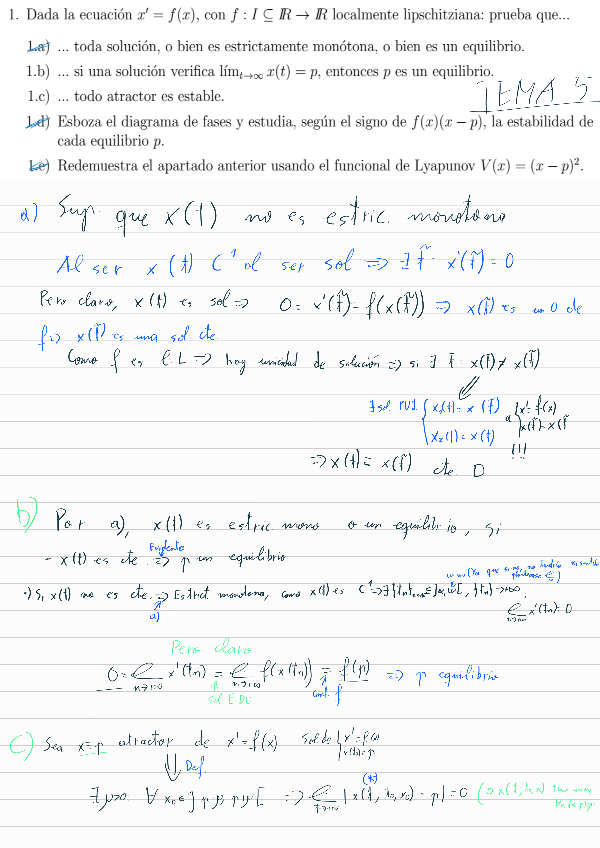 1. Dada la ecuación x' = f(x), con f : I ⊆ ℝ → ℝ localmente lipschitziana: prueba que...
1.a) ... toda solución, o bien es estrictamente monótona, o bien es un equilibrio.
1.b) ... si una solución verifica lím_{t→∞} x(t) = p, entonces p es un equilibrio.
1.c) ... todo atractor es estable.
TEMA 5
1.d) Esboza el diagrama de fases y estudia, según el signo de f(x)(x − p), la estabilidad de
cada equilibrio p.
1.e) Redemuestra el apartado anterior usando el funcional de Lyapunov V(x) = (x − p)².
a) Sup. que x(t) no es estric. monotona
Al ser x(t) C¹ al ser sol ⇒ ∃ t̃ : x'(t̃) = 0
Pero claro, x(t) es sol ⇒ 0 = x'(t̃) = f(x(t̃)) ⇒ x(t̃) es un 0 de
f ⇒ x(t̃) es una sol cte.
Como f es l.L ⇒ hay unicidad de solución ⇒ si ∃ t̄ : x(t̄) ≠ x(t̃)
∃ sol. PVI { x₁(t) = x(t̃) a { x' = f(x)
x₂(t) = x(t) x(t̃) = x(t̃)
!!!
⇒ x(t) = x(t̃) cte. □
b) Por a), x(t) es estric. mono o un equilibrio, si
- x(t) es cte. ⇒ p un equilibrio
Evidente
·) Si x(t) no es cte. ⇒ Estrict monotona, como x(t) es C¹ ⇒ ∃ {tₙ}
a)
x'(tₙ) = 0
Pero claro
0 = x'(tₙ) = f(x(tₙ)) = f(p) ⇒ p equilibrio
sol EDO
cont. f
c) Sea x≡p atractor de x' = f(x) Sol de { x' = f(x)
x(t₀) = p
Def.
∃ μ>0: ∀ x₀ ∈ ]p-μ, p+μ[ ⇒ |x(t, t₀, x₀) - p| = 0
(*)